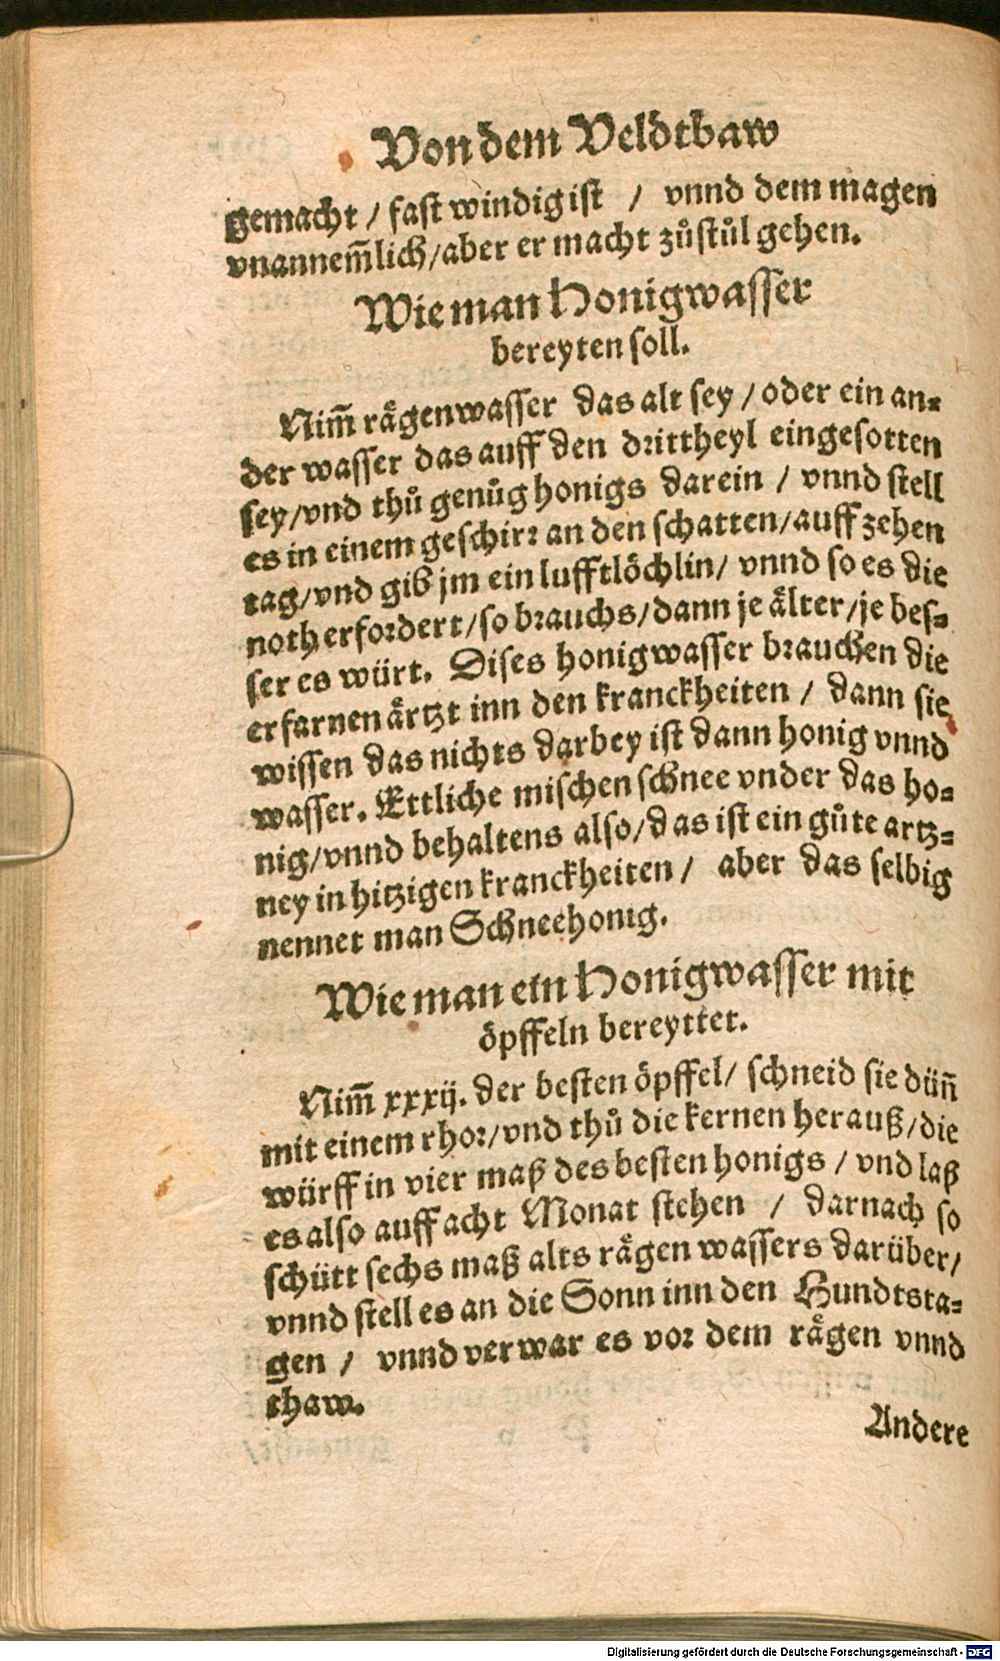 Von dem Veldtbaw
gemacht / fast windig ist / vnnd dem magen
vnannem̃lich / aber er macht zůstůl gehen.
Wie man Honigwasser
bereyten soll.
Nim̃ rågenwasser das alt sey / oder ein an⸗
der wasser das auff den drittheyl eingesotten
sey / vnd thů genůg honigs darein / vnnd stell
es in einem geschirr an den schatten / auff zehen
tag / vnd gib jm ein lufftlöchlin / vnnd so es die
noth erfordert / so brauchs / dann je ålter / je bes⸗
ser es würt. Dises honigwasser brauchen die
erfarnen årtzt inn den kranckheiten / dann sie
wissen das nichts darbey ist dann honig vnnd
wasser. Ettliche mischen schnee vnder das ho⸗
nig / vnnd behaltens also / das ist ein gůte artz⸗
ney in hitzigen kranckheiten / aber das selbig
nennet man Schneehonig.
Wie man ein Honigwasser mit
öpffeln bereyttet.
Nim̃ xxxij. der besten öpffel / schneid sie dün̄
mit einem rhor / vnd thů die kernen herauß / die
würff in vier maß des besten honigs / vnd laß
es also auff acht Monat stehen / darnach so
schütt sechs maß alts rågen wassers darüber /
vnnd stell es an die Sonn inn den Hundtsta⸗
gen / vnnd verwar es vor dem rågen vnnd
thaw.
Andere
Digitalisierung gefördert durch die Deutsche Forschungsgemeinschaft - DFG